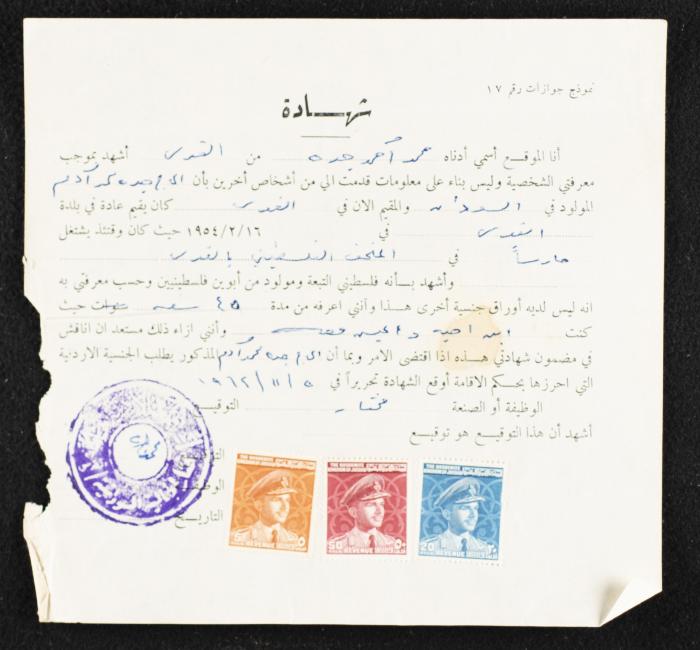 نموذج جوازات رقم ١٧
شهــادة
أنا الموقـع أسمي أدناه محمد أحمد جده من القدس أشهد بموجب
معرفتي الشخصية وليس بناء على معلومات قدمت الي من أشخاص أخرين بأن الحاج جده محمد آدم
المولود في السودان والمقيم الان في القدس كان يقيم عادة في بلدة
القدس في ١٩٥٤/٢/١٦ حيث كان وقتئذ يشتغل
حارساً في المتحف الفلسطيني بالقدس
وأشهد بسأنه فلسطيني التبعة ومولود من أبوين فلسطينيين وحسب معرفتي به
انه ليس لديه أوراق جنسية أخرى هـذا وأنني اعرفه من مدة ٤٥ سنه سنوات حيث
كنت ابن اخيه وأنني ازاء ذلك مستعد ان اناقش
في مضمون شهادتي هـذه اذا اقتضى الامر وبما أن الحاج جده محمد آدم المذكور يطلب الجنسية الاردنية
التي احرزها بحكم الاقامة أوقع الشهادة تحريراً في ١٩٦٢/١١/٥
الوظيفة أو الصنعة مختار التوقيع
أشهد أن هذا التوقيع هو توقيع
التوقيع
الوظيفة
التاريخ
THE HASHEMITE
REVENUE
٥
THE HASHEMITE
50 REVENUE ٥٠
THE HASHEMITE
20 REVENUE ٢٠